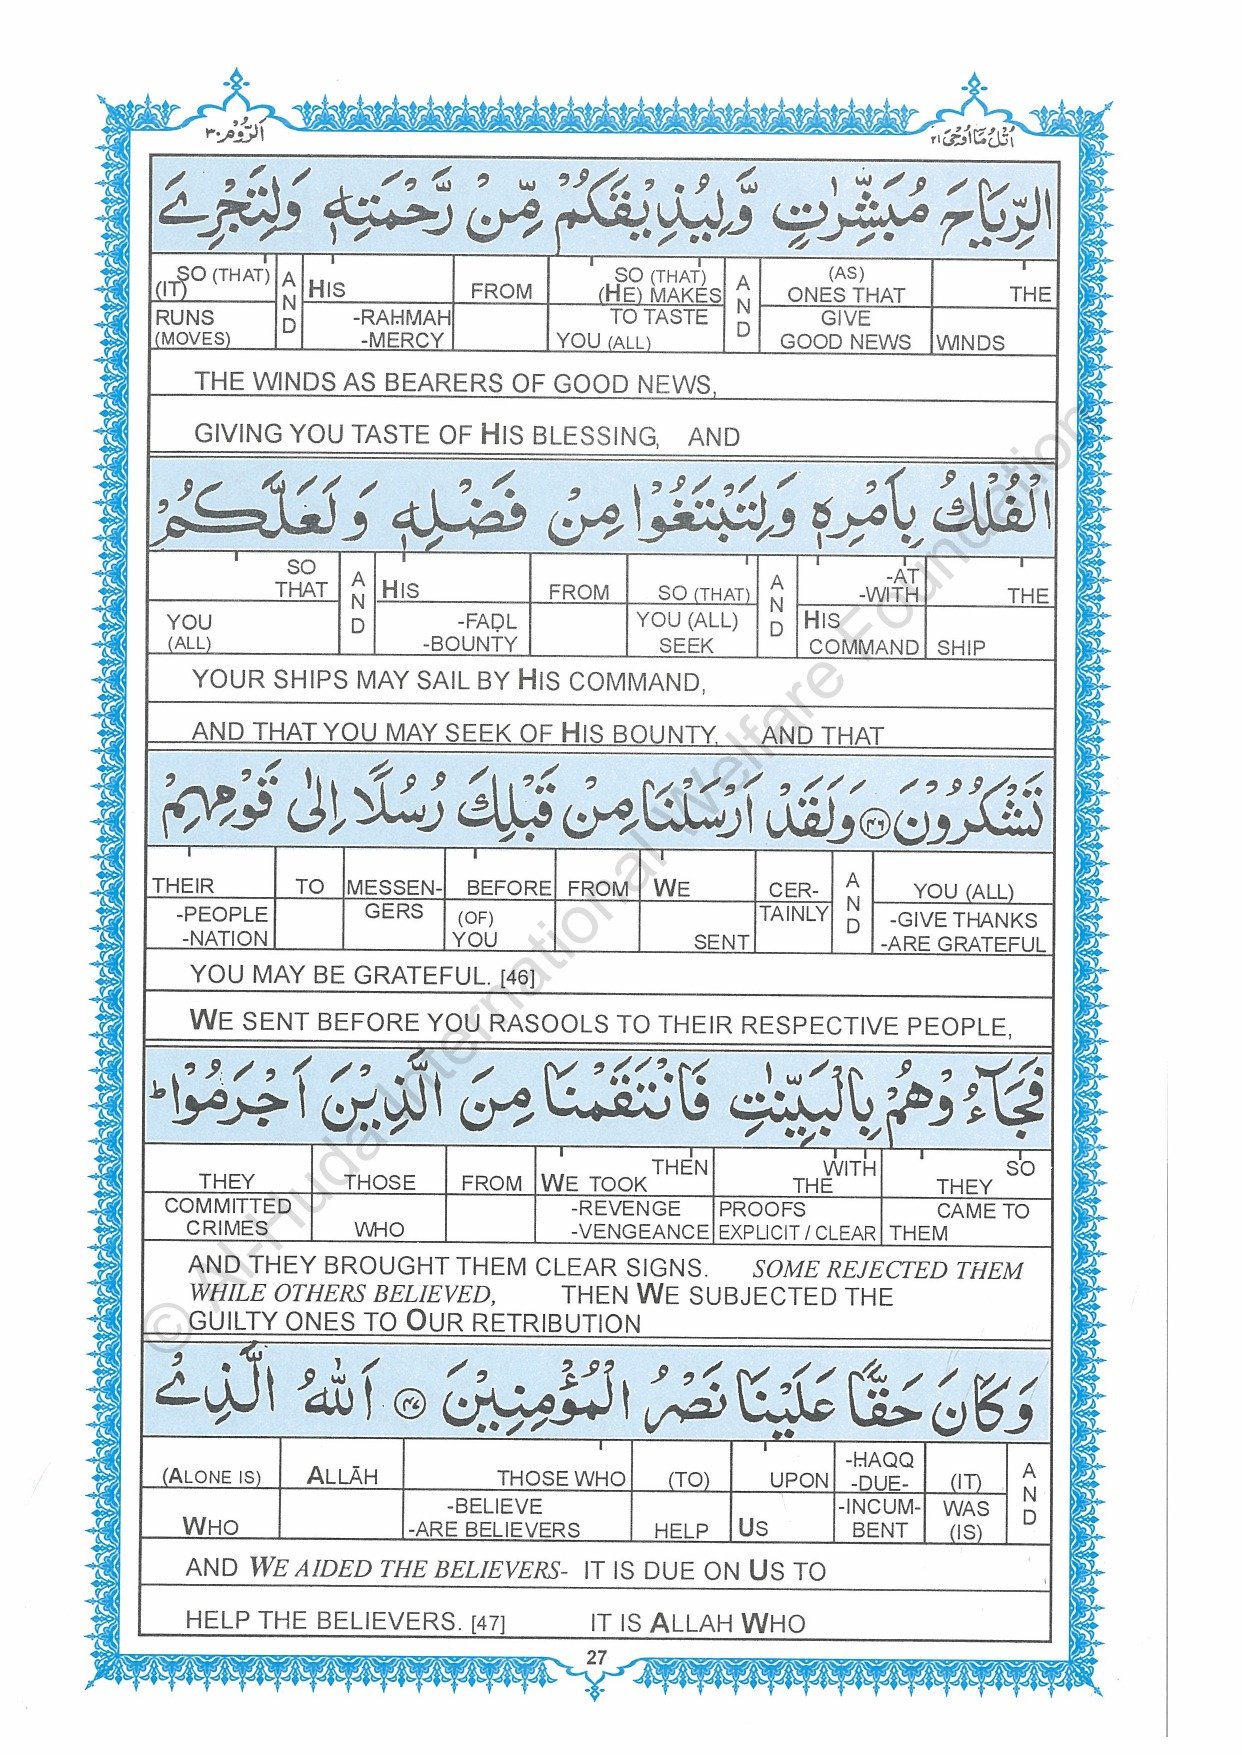 الرُّوۡم ٣٠
اُتۡلُ مَاۤ اُوۡحِىَ ٢١
الرِّيَاحَ مُبَشِّرٰتٍ وَّلِيُذِيۡقَكُمۡ مِّنۡ رَّحۡمَتِهٖ وَلِتَجۡرِىَ
SO (THAT) (IT) RUNS (MOVES) | AND | HIS -RAHMAH -MERCY | FROM | SO (THAT) (HE) MAKES TO TASTE YOU (ALL) | AND | (AS) ONES THAT GIVE GOOD NEWS | THE WINDS
THE WINDS AS BEARERS OF GOOD NEWS,
GIVING YOU TASTE OF HIS BLESSING, AND
الۡفُلۡكُ بِاَمۡرِهٖ وَلِتَبۡتَغُوۡا مِنۡ فَضۡلِهٖ وَلَعَلَّكُمۡ
SO THAT YOU (ALL) | AND | HIS -FAḌL -BOUNTY | FROM | SO (THAT) YOU (ALL) SEEK | AND | -AT -WITH HIS COMMAND | THE SHIP
YOUR SHIPS MAY SAIL BY HIS COMMAND,
AND THAT YOU MAY SEEK OF HIS BOUNTY, AND THAT
تَشۡكُرُوۡنَ ﴿٤٦﴾ وَلَقَدۡ اَرۡسَلۡنَا مِنۡ قَبۡلِكَ رُسُلًا اِلٰى قَوۡمِهِمۡ
THEIR -PEOPLE -NATION | TO | MESSENGERS | BEFORE (OF) YOU | FROM | WE SENT | CERTAINLY | AND | YOU (ALL) -GIVE THANKS -ARE GRATEFUL
YOU MAY BE GRATEFUL. [46]
WE SENT BEFORE YOU RASOOLS TO THEIR RESPECTIVE PEOPLE,
فَجَآءُوۡهُمۡ بِالۡبَيِّنٰتِ فَانْتَقَمۡنَا مِنَ الَّذِيۡنَ اَجۡرَمُوۡا ؕ
THEY COMMITTED CRIMES | THOSE WHO | FROM | THEN WE TOOK -REVENGE -VENGEANCE | WITH THE PROOFS EXPLICIT / CLEAR | SO THEY CAME TO THEM
AND THEY BROUGHT THEM CLEAR SIGNS. SOME REJECTED THEM
WHILE OTHERS BELIEVED, THEN WE SUBJECTED THE
GUILTY ONES TO OUR RETRIBUTION
وَكَانَ حَقًّا عَلَيۡنَا نَصۡرُ الۡمُؤۡمِنِيۡنَ ﴿٤٧﴾ اَللّٰهُ الَّذِىۡ
(ALONE IS) WHO | ALLĀH | THOSE WHO -BELIEVE -ARE BELIEVERS | (TO) HELP | UPON US | -HAQQ -DUE- -INCUMBENT | (IT) WAS (IS) | AND
AND WE AIDED THE BELIEVERS- IT IS DUE ON US TO
HELP THE BELIEVERS. [47] IT IS ALLAH WHO
27
© Al-Huda International Welfare Foundation